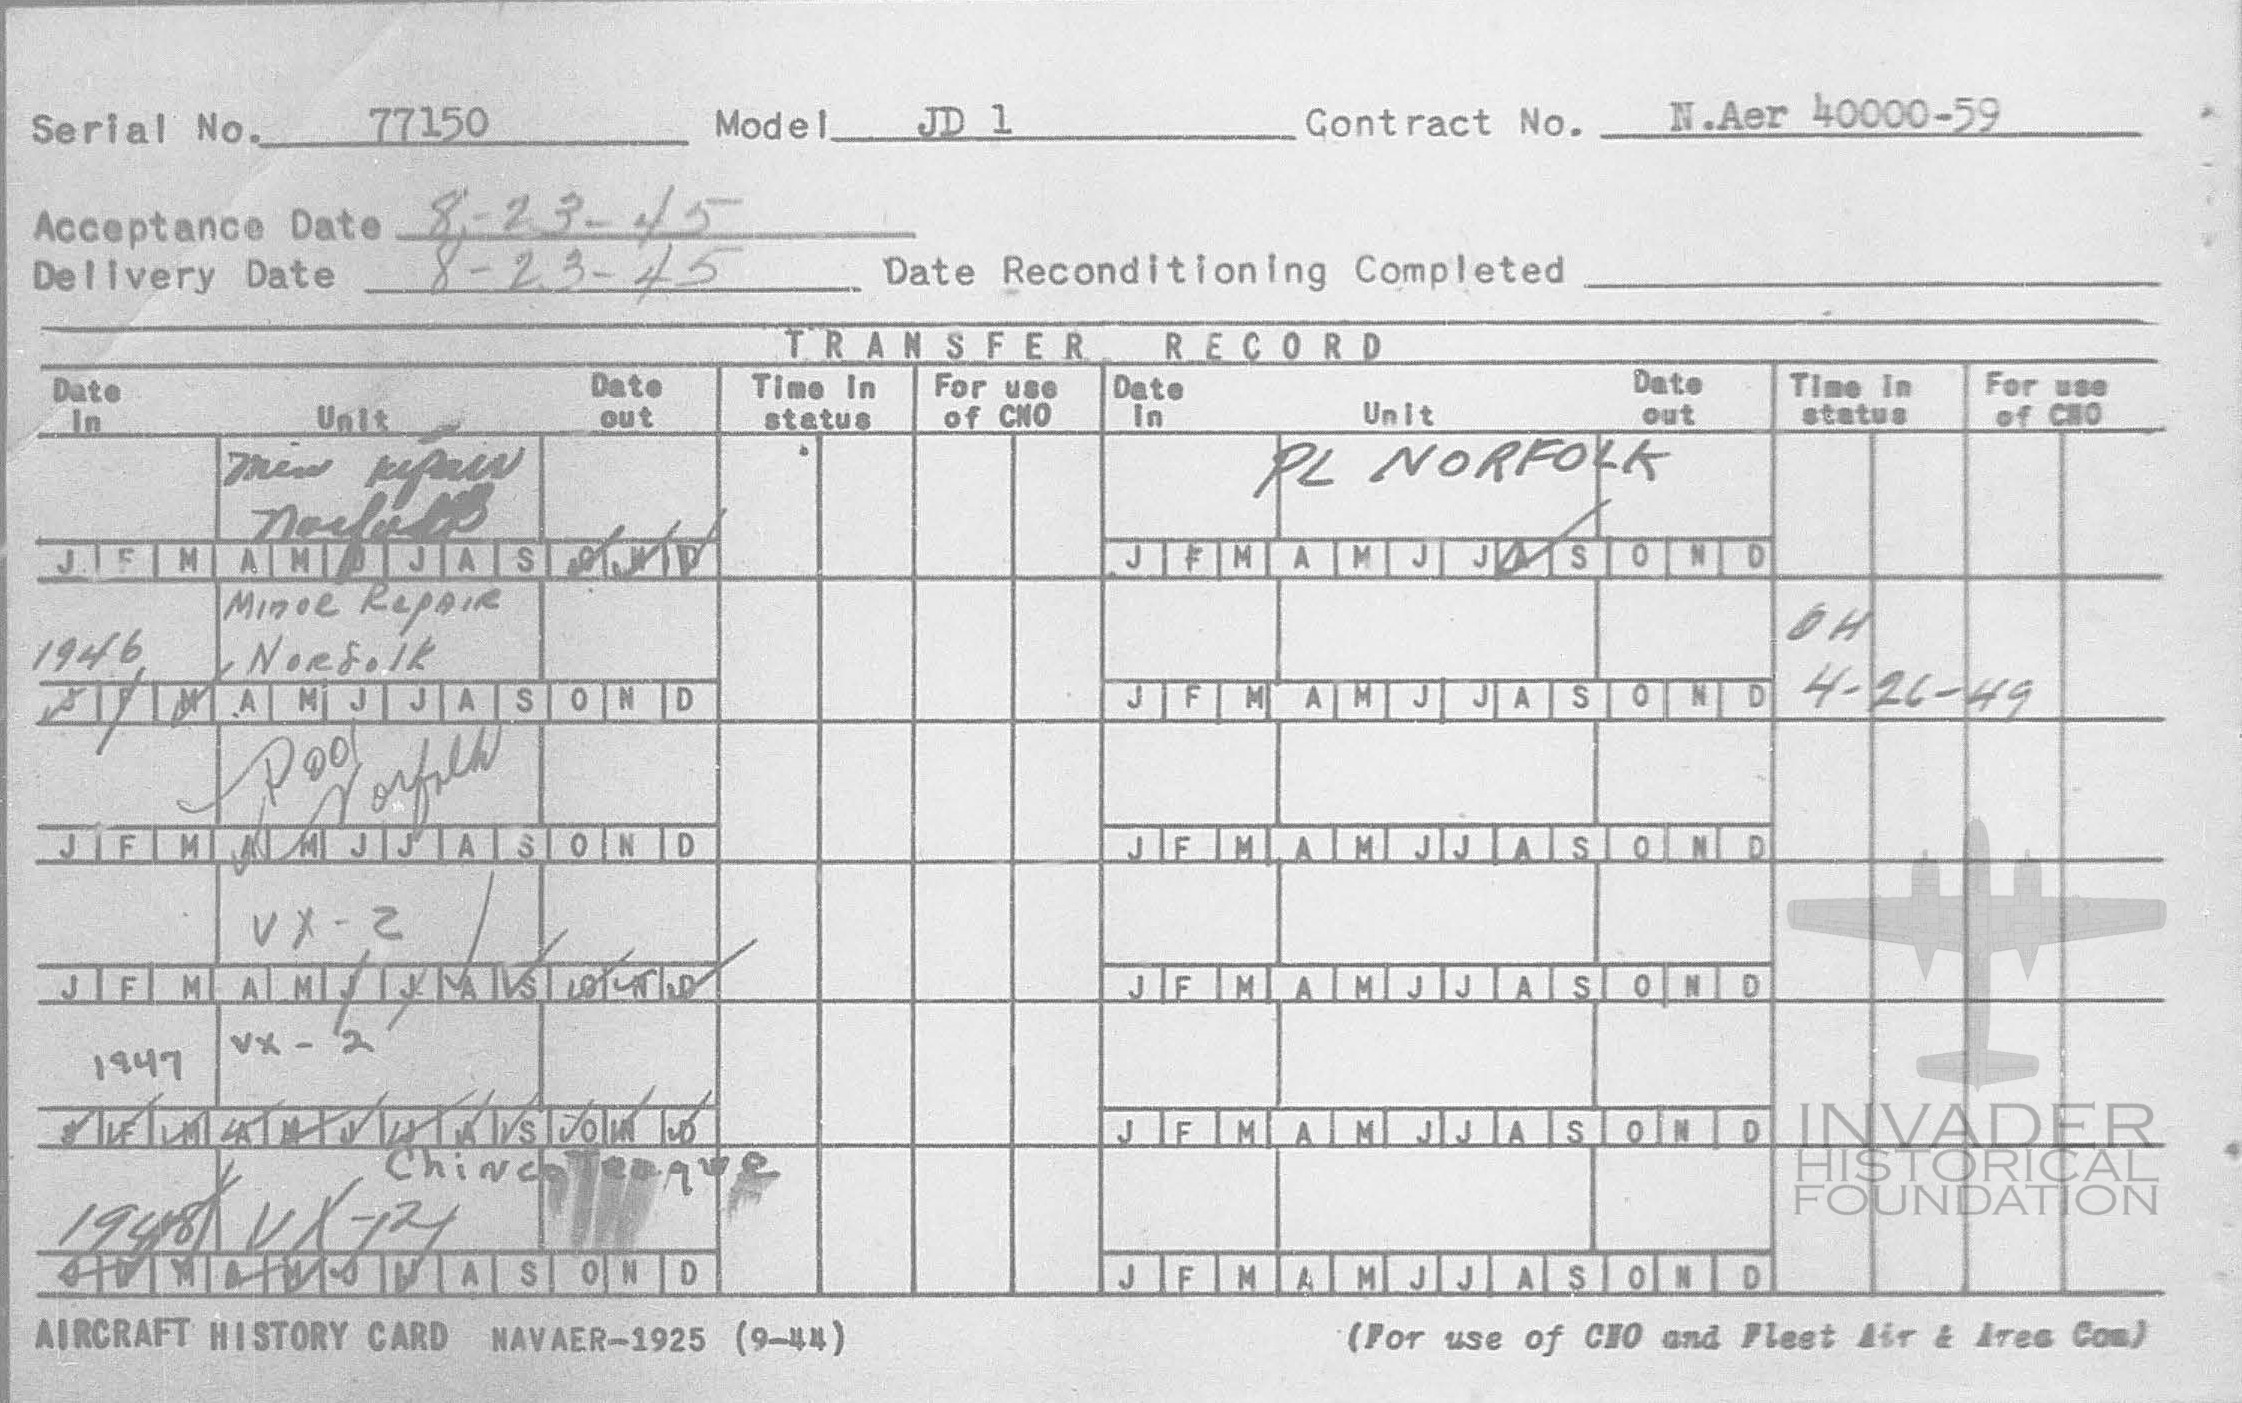 Serial No. 77150 Model JD 1 Contract No. N.Aer 40000-59
Acceptance Date 8-23-45
Delivery Date 8-23-45 Date Reconditioning Completed
TRANSFER RECORD
Date in Unit Date out Time in status For use of CNO Date in Unit Date out Time in status For use of CNO
Min repair PL NORFOLK
Norfolk
J F M A M J J A S O N D J F M A M J J A S O N D
Minor Repair OH
1946 Norfolk
J F M A M J J A S O N D J F M A M J J A S O N D 4-26-49
Pool
Norfolk
J F M A M J J A S O N D J F M A M J J A S O N D
VX-2
J F M A M J J A S O N D J F M A M J J A S O N D
1947 VX-2
J F M A M J J A S O N D J F M A M J J A S O N D
Chincoteague
1948 VX-2
J F M A M J J A S O N D J F M A M J J A S O N D
INVADER
HISTORICAL
FOUNDATION
AIRCRAFT HISTORY CARD NAVAER-1925 (9-44) (For use of CNO and Fleet Air & Area Com)